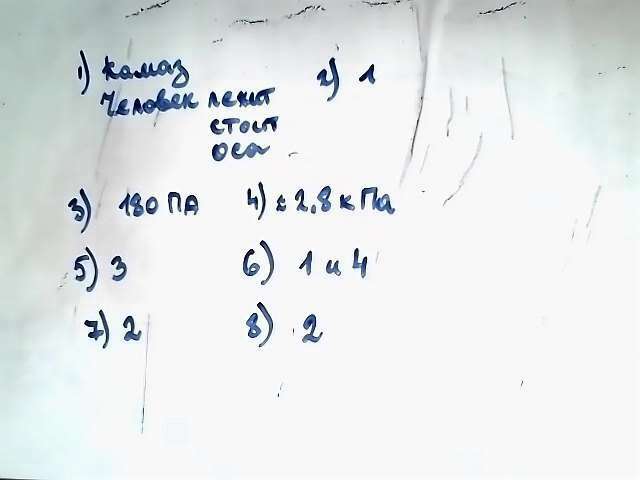 1) Камаз 2) 1
Человек лежит
стоит
оса
3) 180 ПА 4) ≈ 2,8 кПа
5) 3 6) 1 и 4
7) 2 8) 2